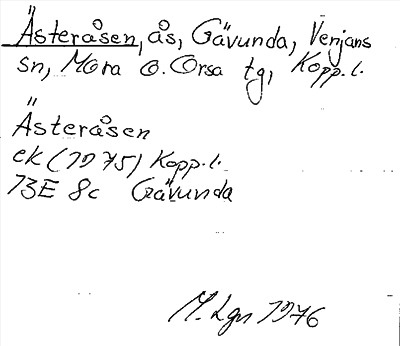 Ästeråsen, ås, Gävunda, Venjans
sn, Mora o. Orsa tg, Kopp. l.
Ästeråsen
ek (1975) Kopp. l.
13E 8c Gävunda
M. Lgn 1976